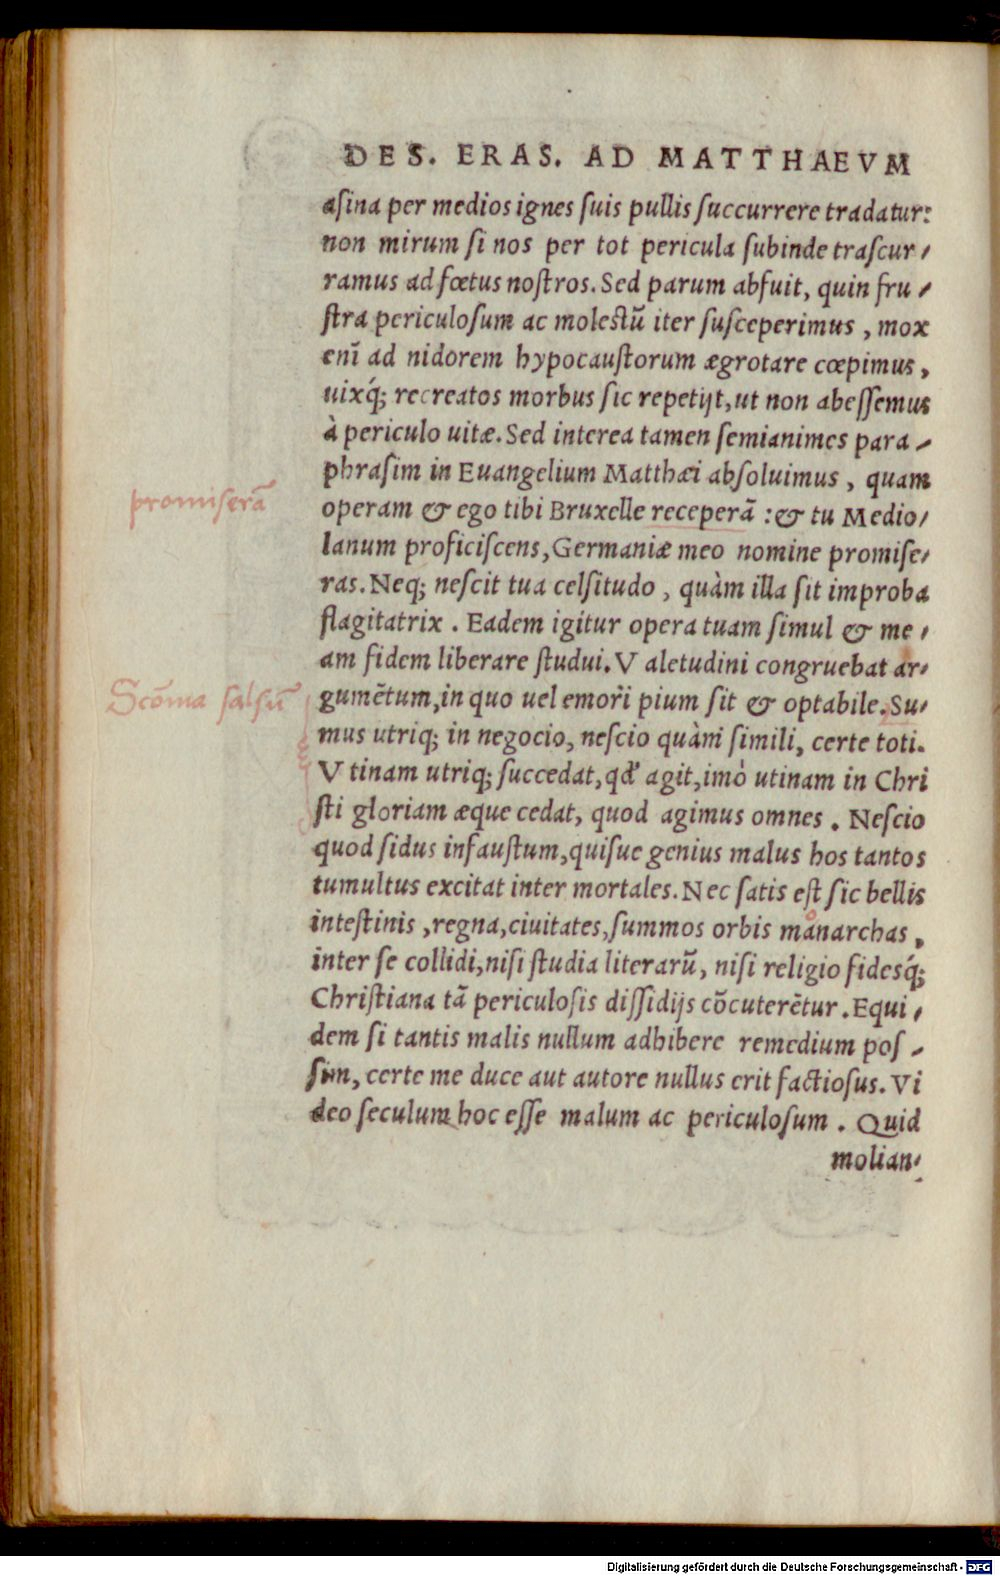 DES. ERAS. AD MATTHAEVM
asina per medios ignes suis pullis succurrere tradatur:
non mirum si nos per tot pericula subinde trascur-
ramus ad fœtus nostros. Sed parum abfuit, quin fru-
stra periculosum ac molestũ iter susceperimus, mox
enĩ ad nidorem hypocaustorum ægrotare cœpimus,
uixq́; recreatos morbus sic repetijt, ut non abessemus
à periculo uitæ. Sed interea tamen semianimes para-
phrasim in Euangelium Matthæi absoluimus, quam
promiserã
operam & ego tibi Bruxelle receperã: & tu Medio-
lanum proficiscens, Germaniæ meo nomine promise-
ras. Neq; nescit tua celsitudo, quàm illa sit improba
flagitatrix. Eadem igitur opera tuam simul & me-
am fidem liberare studui. Valetudini congruebat ar-
Scõma salsũ
gumẽtum, in quo uel emori pium sit & optabile. Su-
mus utriq; in negocio, nescio quàm simili, certe toti.
Vtinam utriq; succedat, qđ agit, imò utinam in Chri
sti gloriam æque cedat, quod agimus omnes. Nescio
quod sidus infaustum, quisue genius malus hos tantos
tumultus excitat inter mortales. Nec satis est sic bellis
o
intestinis, regna, ciuitates, summos orbis manarchas,
inter se collidi, nisi studia literarũ, nisi religio fidesq́;
Christiana tã periculosis dissidijs cõcuterẽtur. Equi-
dem si tantis malis nullum adhibere remedium pos-
sim, certe me duce aut autore nullus erit factiosus. Vi
deo seculum hoc esse malum ac periculosum. Quid
molian-
Digitalisierung gefördert durch die Deutsche Forschungsgemeinschaft - DFG